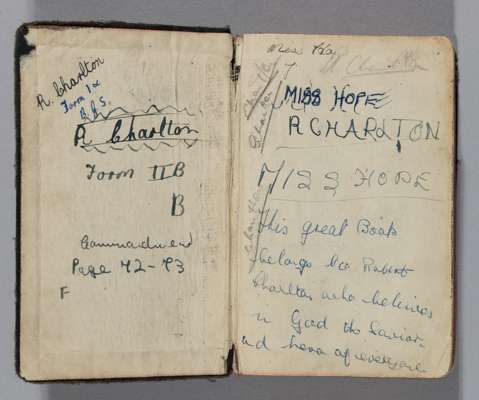 R. Charlton
Form 1
B.G.S.
R Charlton
Form II B
B
Page 72-73
F
Miss
MISS HOPE
R CHARLTON
MISS HOPE
Charlton
Charlton
This great Book
belongs to Robert
Charlton who believes
in God the Saviour
and of everyone